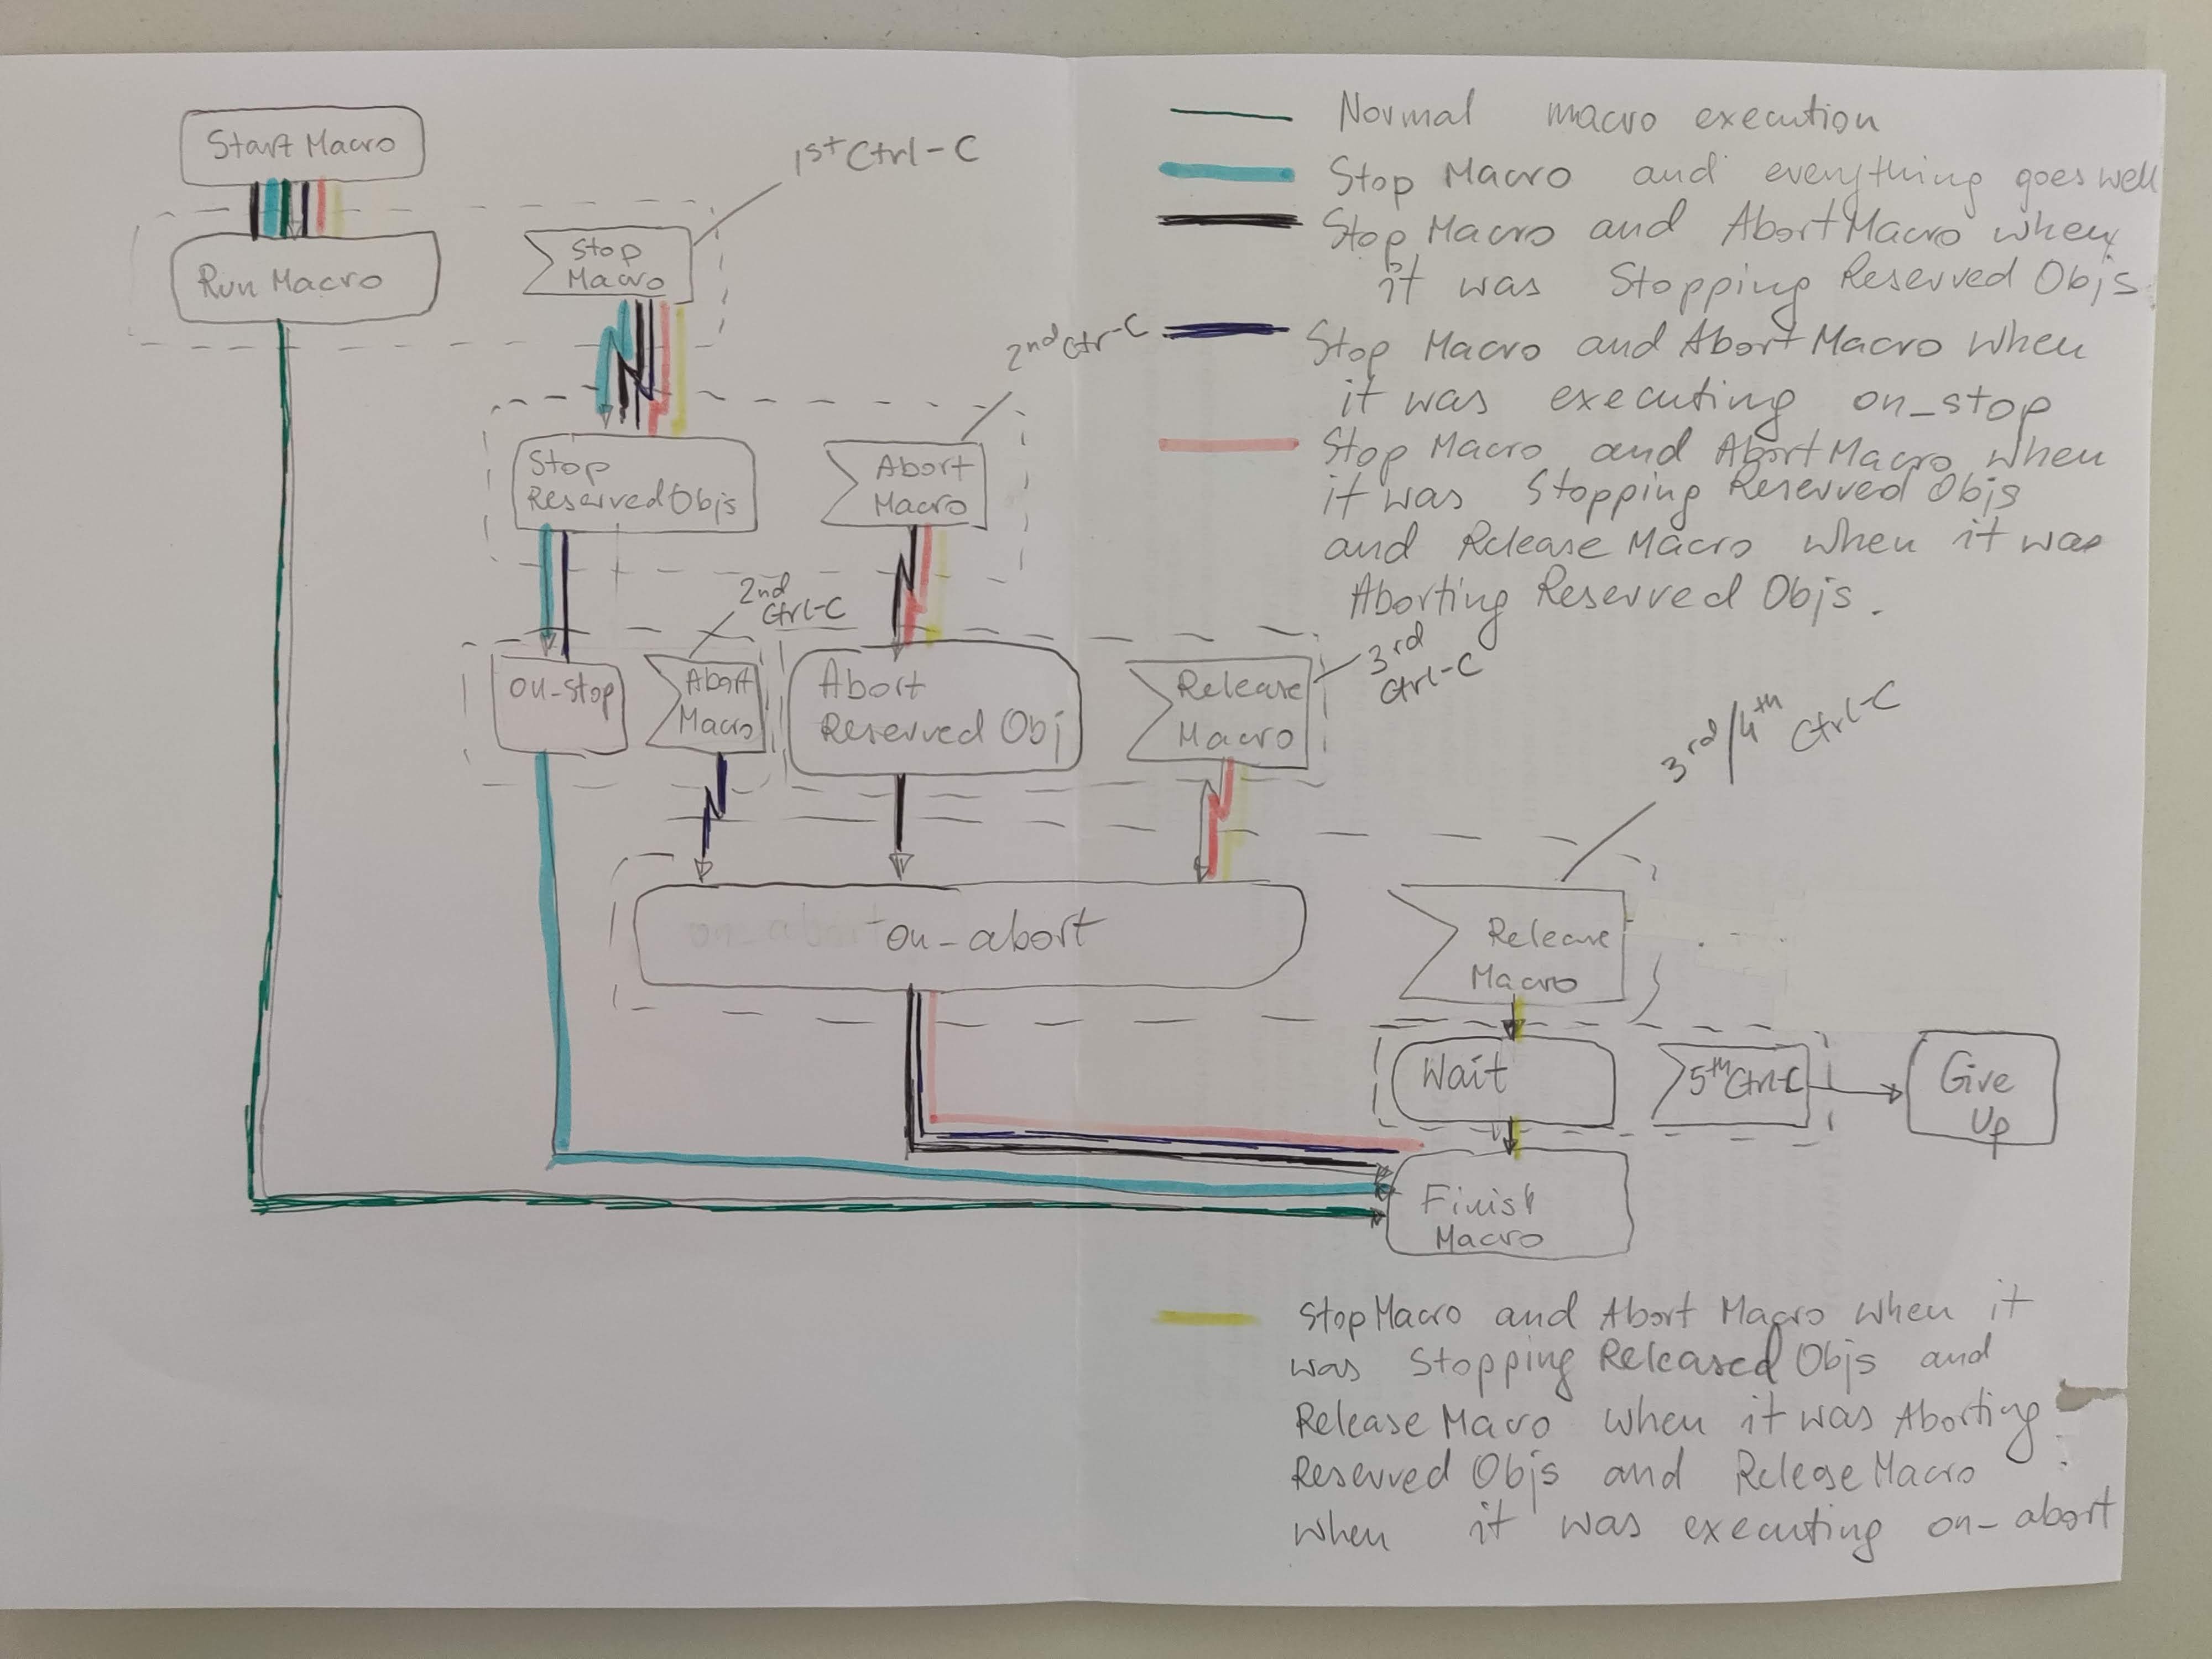 Start Macro
Run Macro
Stop
Macro
1st Ctrl-C
Stop
Reserved Objs
Abort
Macro
2nd Ctr-C
on-stop
Abort
Macro
2nd
Ctrl-C
Abort
Reserved Obj
Release
Macro
3rd
Ctrl-C
on-abort
Release
Macro
3rd/4th Ctrl-C
Wait
5th Ctrl-C
Give
Up
Finish
Macro
Normal macro execution
Stop Macro and everything goes well
Stop Macro and Abort Macro when
it was Stopping Reserved Objs
Stop Macro and Abort Macro when
it was executing on_stop
Stop Macro and Abort Macro when
it was Stopping Reserved Objs
and Release Macro when it was
Aborting Reserved Objs.
Stop Macro and Abort Macro when it
was Stopping Released Objs and
Release Macro when it was Aborting
Reserved Objs and Release Macro
when it was executing on-abort